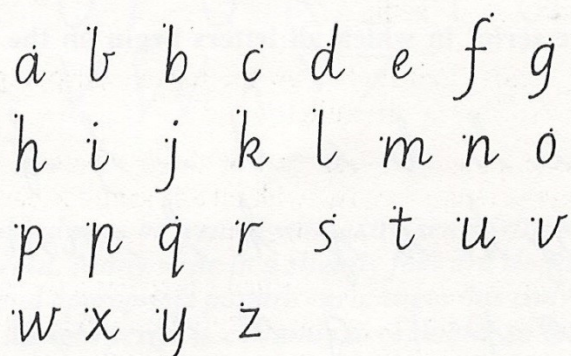 a b b c d e f g
h i j k l m n o
p p q r s t u v
w x y z